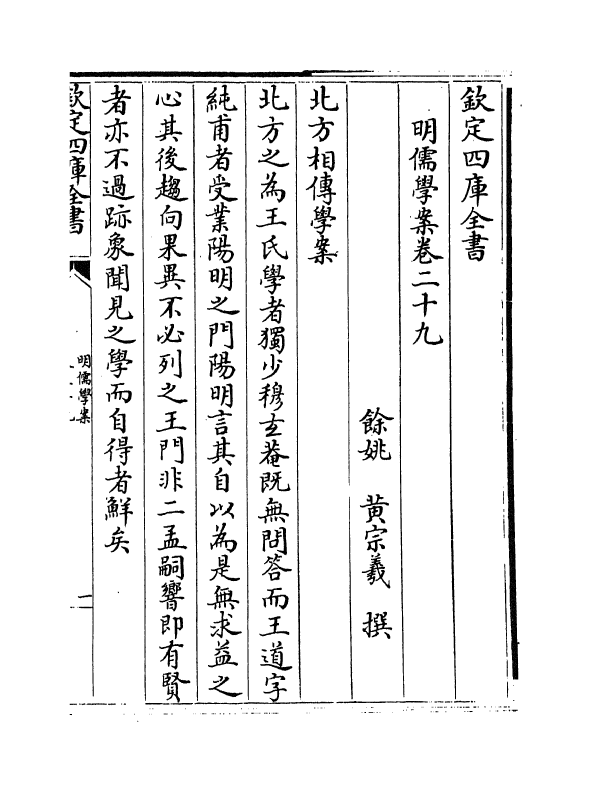 欽定四庫全書
明儒學案卷二十九
餘姚　黃宗羲　撰
北方相傳學案
北方之為王氏學者獨少穆玄菴既無問答而王道字
純甫者受業陽明之門陽明言其自以為是無求益之
心其後趨向果異不必列之王門非二孟嗣響即有賢
者亦不過跡象聞見之學而自得者鮮矣
欽定四庫全書
明儒學案
一